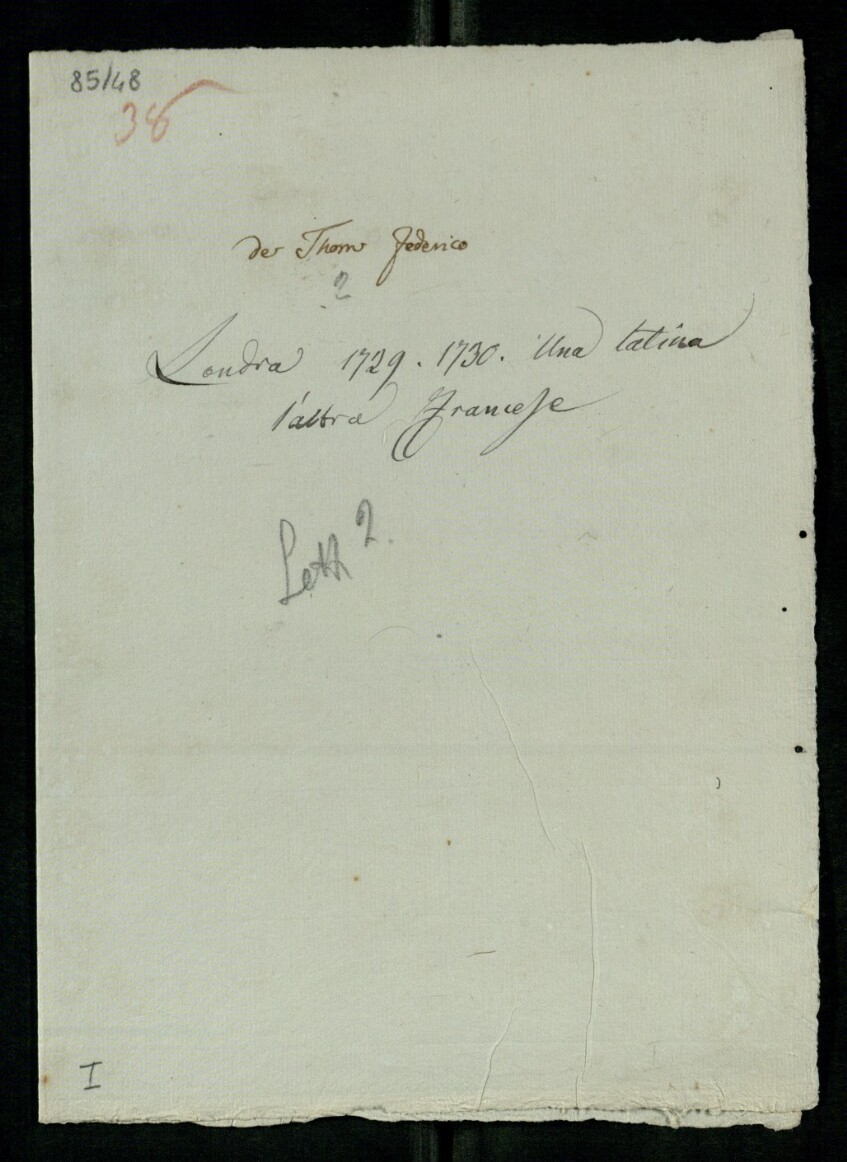 85/48
38
der Thom Federico
2
Londra 1729. 1730. Una latina
l'altra Francese
Lett 2.
I